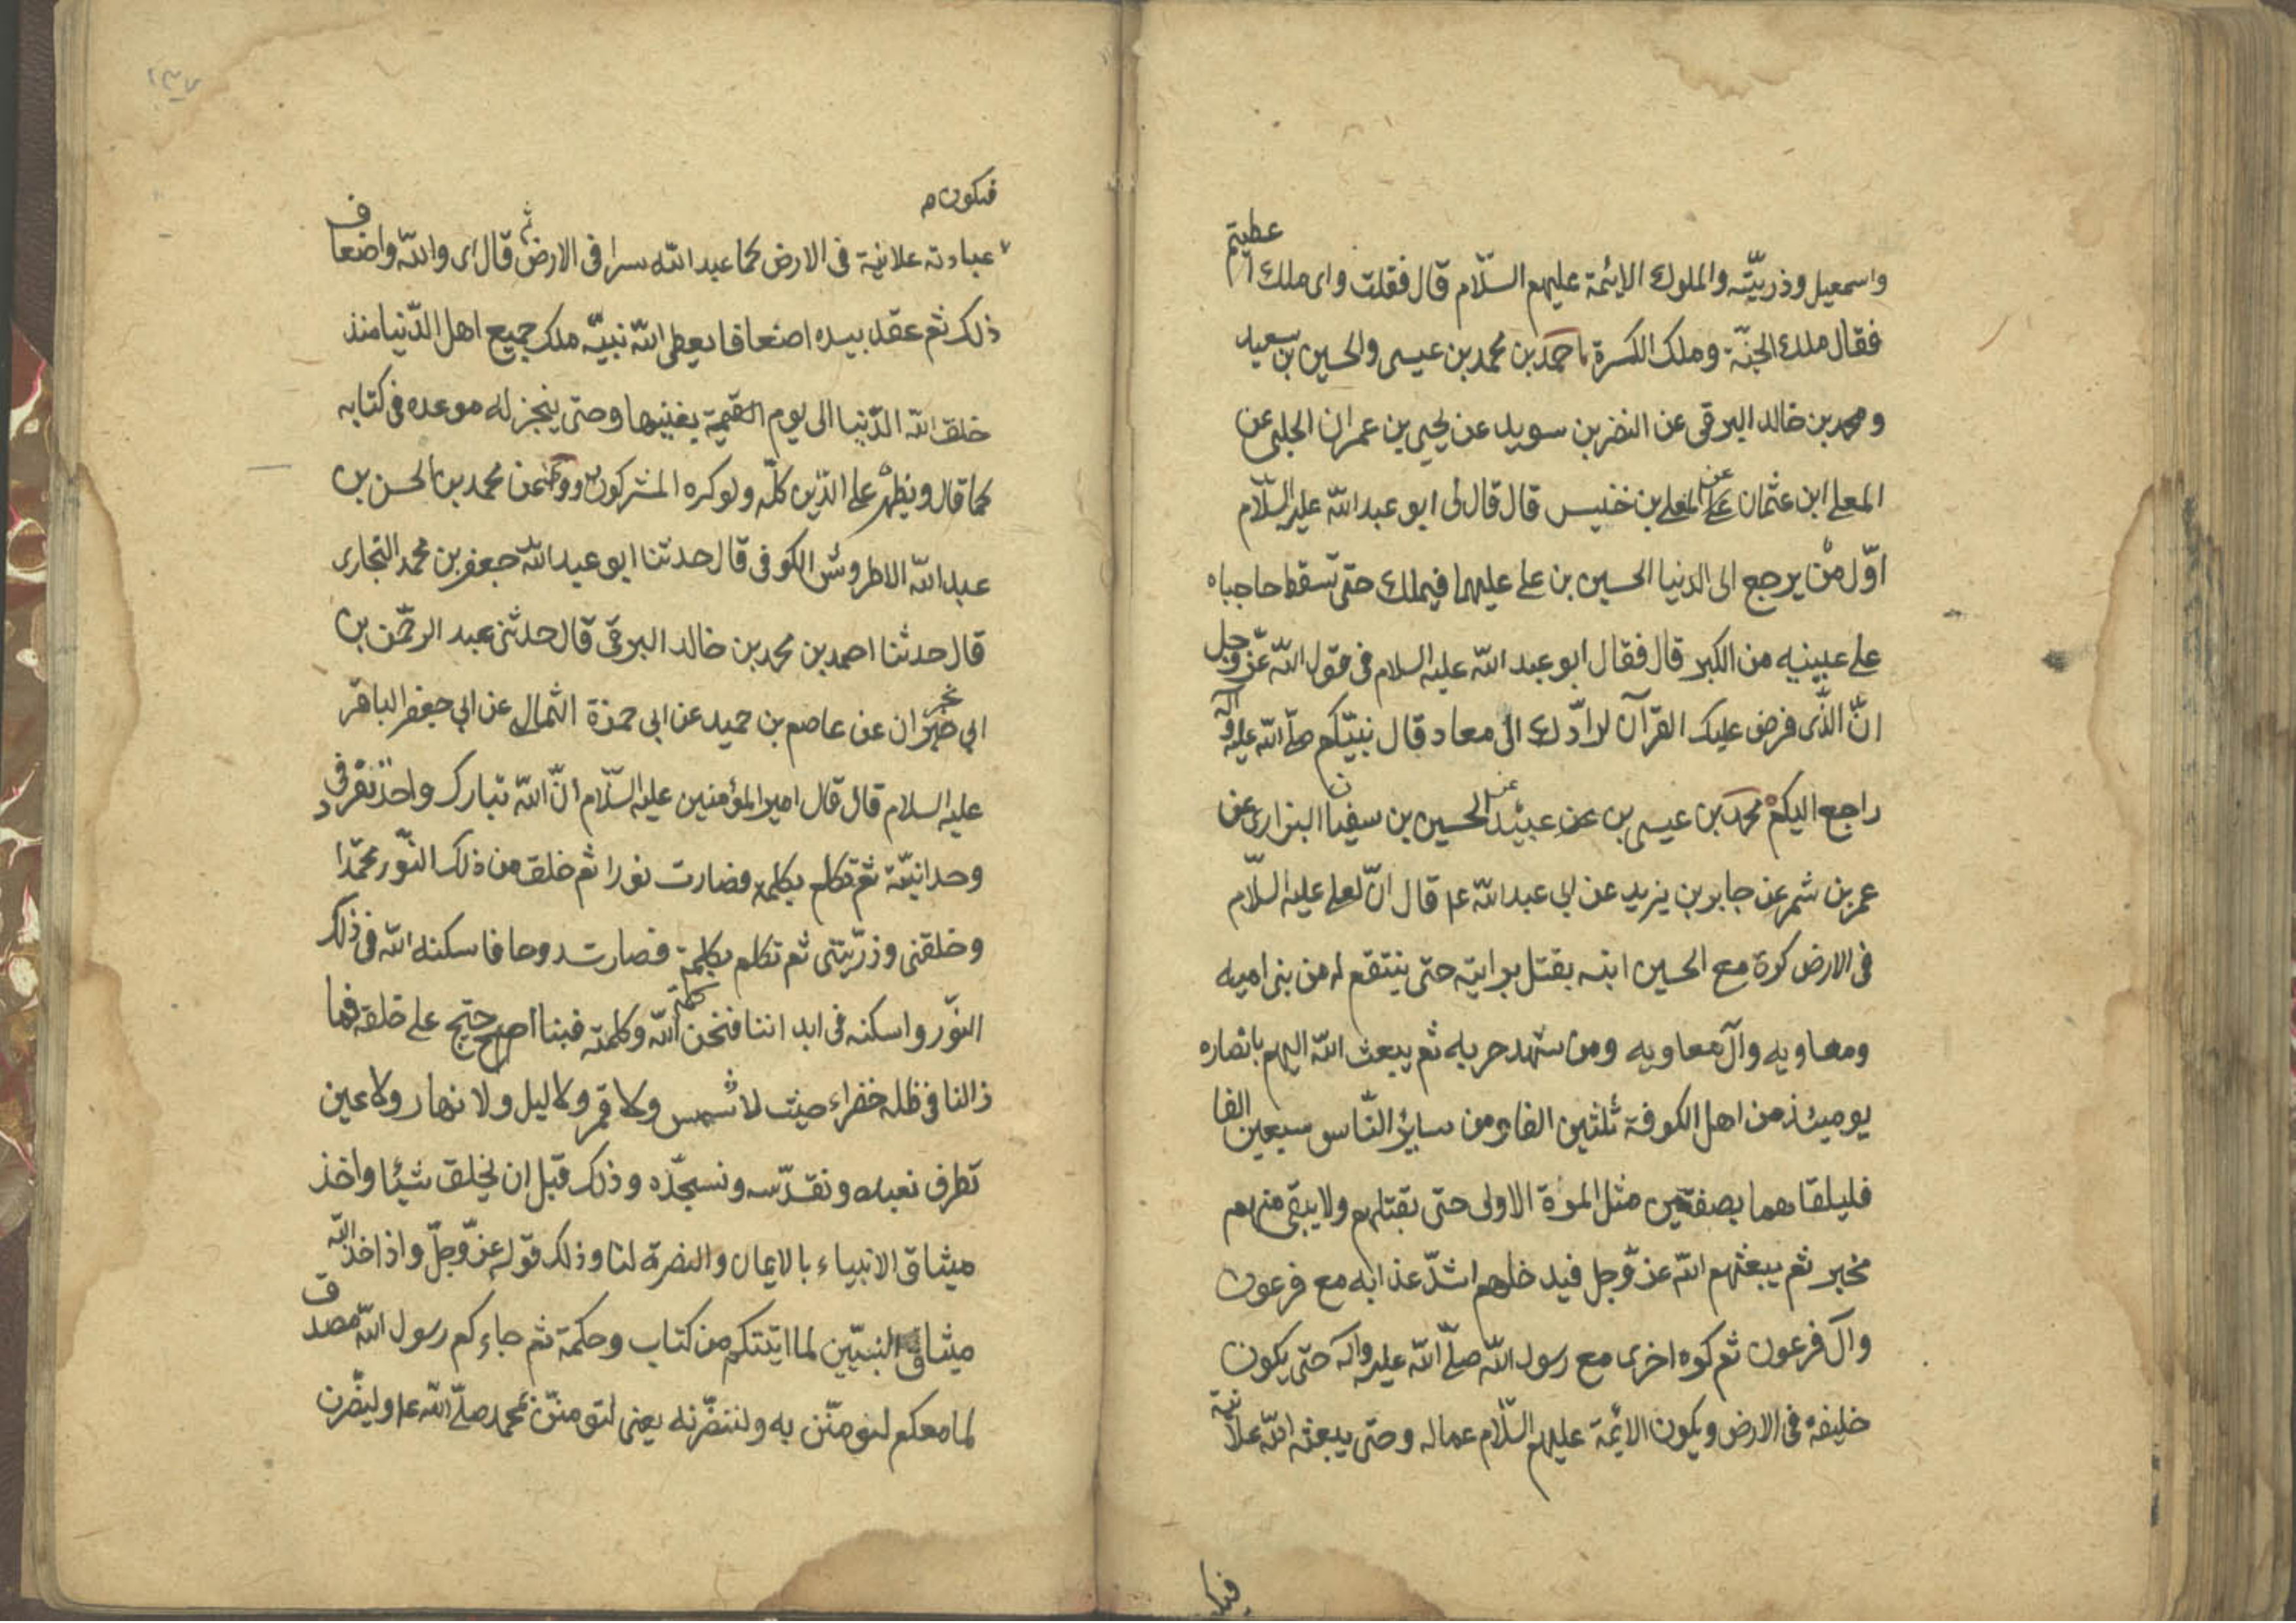 واسمعيل وذريّته والملوك الائمة عليهم السّلام قال فقلت واى ملك اعطيتم
فقال ملك الجنّة وملك الكرة احمد بن محمد بن عيسى والحسين بن سعيد
ومحمد بن خالد البرقى عن النضر بن سويد عن يحيى بن عمران الحلبى عن
المعلى ابن عثمان عن المعلى بن خنيس قال قال لى ابو عبد الله عليه السّلام
اوّل من يرجع الى الدنيا الحسين بن على عليهما فيملك حتى تسقط حاجباه
على عينيه من الكبر قال فقال ابو عبد الله عليه السلام فى قول الله عزّ وجل
انّ الّذى فرض عليك القرآن لرادّك الى معاد قال نبيّكم صلّى الله عليه وآله
راجع اليكم محمد بن عيسى بن عبيد عن الحسين بن سفيان البزاز عن
عمر بن شمر عن جابر بن يزيد عن ابى عبد الله ع قال انّ لعلى عليه السّلام
فى الارض كرة مع الحسين ابنه يقتل برايته حتى ينتقم له من بنى اميه
ومعاويه وآل معاويه ومن شهد حربه ثم يبعث الله اليهم بانصاره
يومئذ من اهل الكوفة ثلثين الفا ومن ساير النّاس سبعين الفا
فليلقاهما بصفين مثل المرة الاولى حتى يقتلهم ولا يبقى منهم
مخبر ثم يبعثهم الله عزّ وجل فيدخلهم اشدّ عذابه مع فرعون
وآل فرعون ثم كره اخرى مع رسول الله صلّى الله عليه وآله حتّى يكون
خليفة فى الارض ويكون الائمّة عليهم السّلام عماله وحتى يبعثه الله علانية
فيكـ
٢٣٧
فيكون م
عبادته علانية فى الارض كما عبد الله سرا فى الارض ثم قال اى والله واضعاف
ذلك ثم عقد بيده اضعافا يعطى الله نبيّه ملك جميع اهل الدّنيا منذ
خلق الله الدّنيا الى يوم القيمة يفنيها وحتى ينجز له موعده فى كتابه
كما قال ويظهره على الدّين كلّه ولو كره المشركون عن محمد بن الحسن بن
عبد الله الاطروش الكوفى قال حدثنا ابو عبد الله جعفر بن محمد البجارى
قال حدثنا احمد بن محمد بن خالد البرقى قال حدثنى عبد الرحمن بن
ابى نجران عن عاصم بن حميد عن ابى حمزة الثمالى عن ابى جعفر الباقر
عليه السلام قال قال امير المؤمنين عليه السّلام انّ الله تبارك واحد تفرد فى
وحدانيّته ثم تكلم بكلمة فصارت نورا ثم خلق من ذلك النّور محمّدا
وخلقنى وذرّيتى ثم تكلم بكلمة فصارت روحا فاسكنه الله فى ذلك
النّور واسكنه فى ابداننا فنحن كلمة الله وكلمته فبنا احتج على خلقه فما
زالنا فى ظله خضراء حيث لا شمس ولا قمر ولا ليل ولا نهار ولا عين
تطرف نعبده ونقدّسه ونسبّحده وذلك قبل ان يخلق شيئا واخذ
ميثاق الانبياء بالايمان والنصرة لنا وذلك قوله عزّ وجلّ واذ اخذ الله
ميثاق النبيّين لما اتيتكم من كتاب وحكمة ثم جاءكم رسول الله مصدق
لما معكم لتؤمنّن به ولتنصّرنه يعنى لتؤمننّ بمحمد صلّى الله ع ولينصّرن